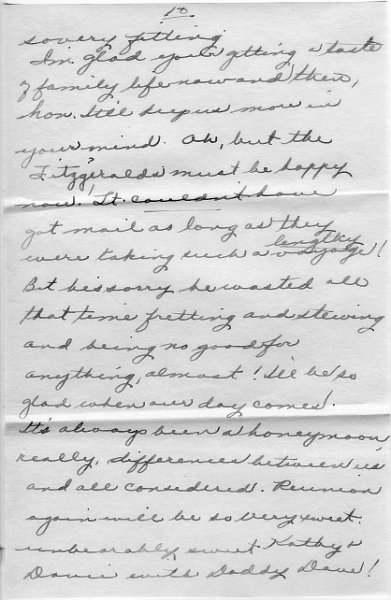 10.
so very fitting.
I'm glad you're getting a taste
of family life now and then,
hon. It'll keep us more in
your mind. Oh, but the
Fitzgeralds must be happy
now! Lt. couldn't have
got mail as long as they
were taking such a lengthy voyage!
But he's sorry he wasted all
that time fretting and stewing
and being no good for
anything, almost! I'll be so
glad when our day comes!
It's always been a honeymoon,
really, differences between us
and all considered. Reunion
again will be so very sweet.
unbearably sweet Kathy &
Davie with Daddy Dave!